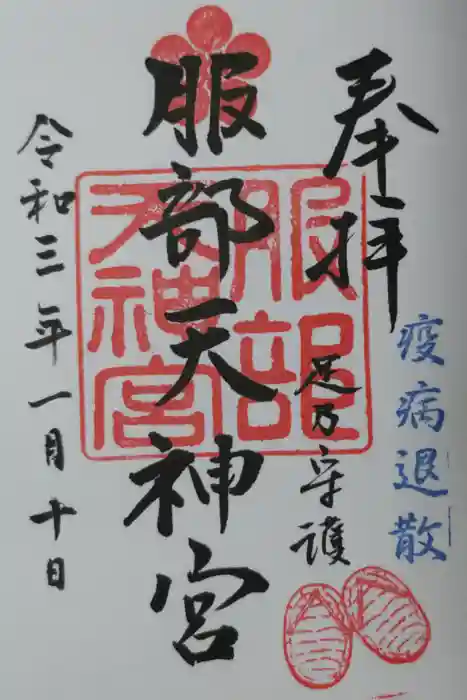 疫病退散
奉拝
足乃守護
服部天神宮
服部
天神宮
令和三年一月十日